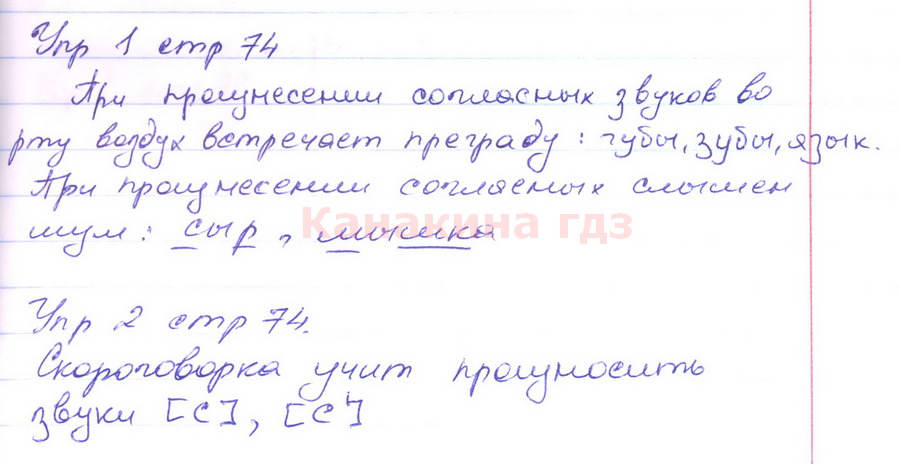 Упр 1 стр 74
При произнесении согласных звуков во
рту воздух встречает преграду: губы, зубы, язык.
При произнесении согласных слышен
шум: сыр, мышка
Канакина гдз
Упр 2 стр 74.
Скороговорка учит произносить
звуки [с], [с']